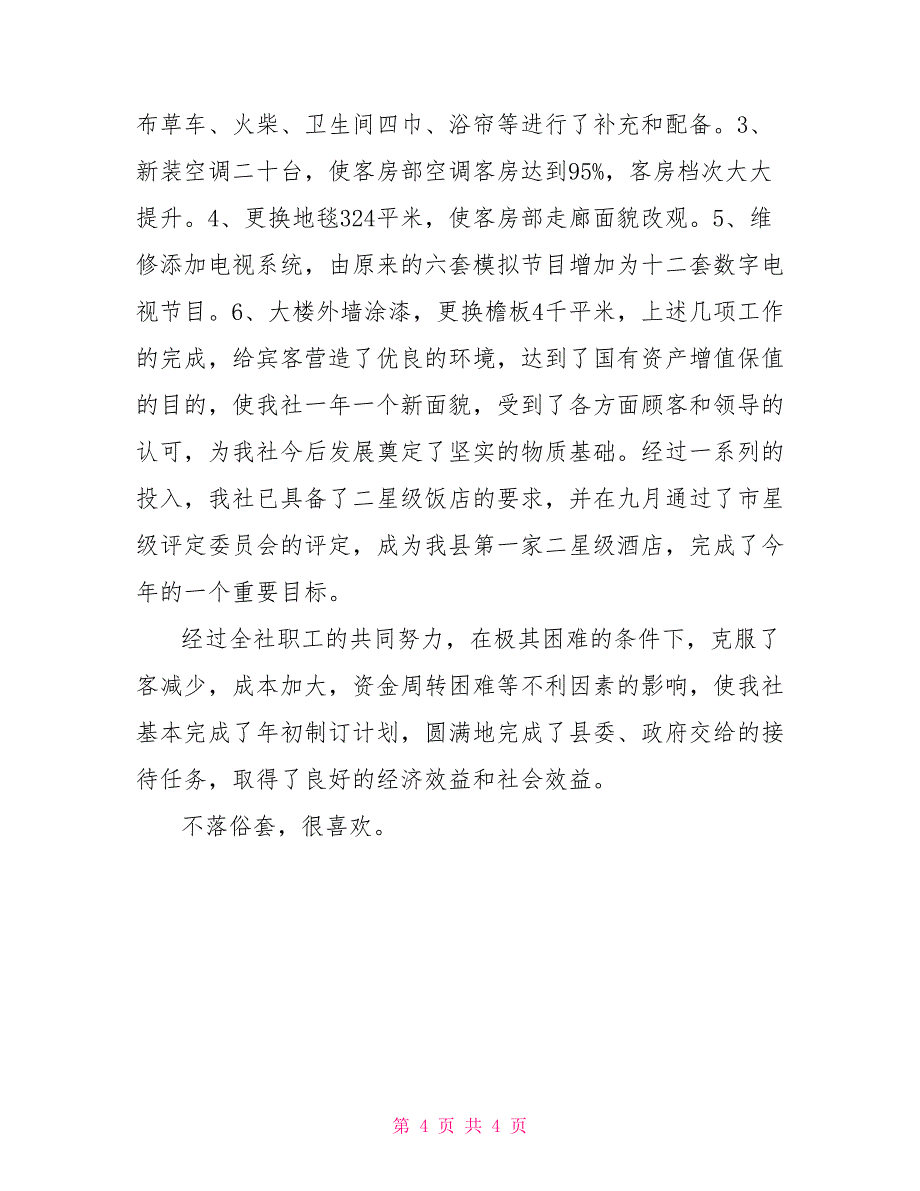 布草车、火柴、卫生间四巾、浴帘等进行了补充和配备。3、
新装空调二十台，使客房部空调客房达到95%，客房档次大大
提升。4、更换地毯324平米，使客房部走廊面貌改观。5、维
修添加电视系统，由原来的六套模拟节目增加为十二套数字电
视节目。6、大楼外墙涂漆，更换檐板4千平米，上述几项工作
的完成，给宾客营造了优良的环境，达到了国有资产增值保值
的目的，使我社一年一个新面貌，受到了各方面顾客和领导的
认可，为我社今后发展奠定了坚实的物质基础。经过一系列的
投入，我社已具备了二星级饭店的要求，并在九月通过了市星
级评定委员会的评定，成为我县第一家二星级酒店，完成了今
年的一个重要目标。
经过全社职工的共同努力，在极其困难的条件下，克服了
客减少，成本加大，资金周转困难等不利因素的影响，使我社
基本完成了年初制订计划，圆满地完成了县委、政府交给的接
待任务，取得了良好的经济效益和社会效益。
不落俗套，很喜欢。
第 4 页 共 4 页